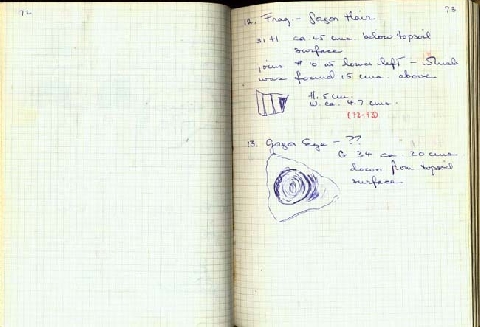 72
73
12. Frag. – Gorgon Hair.
ca 45 cm. below topsoil
surface
joins # 6 on lower left –
was found 15 cms. above
H. 5 cm.
W. ca. 4.7 cms.
(72-73)
13. Gorgon Eye – ??
G 34 ca 20 cms
down from topsoil
surface.